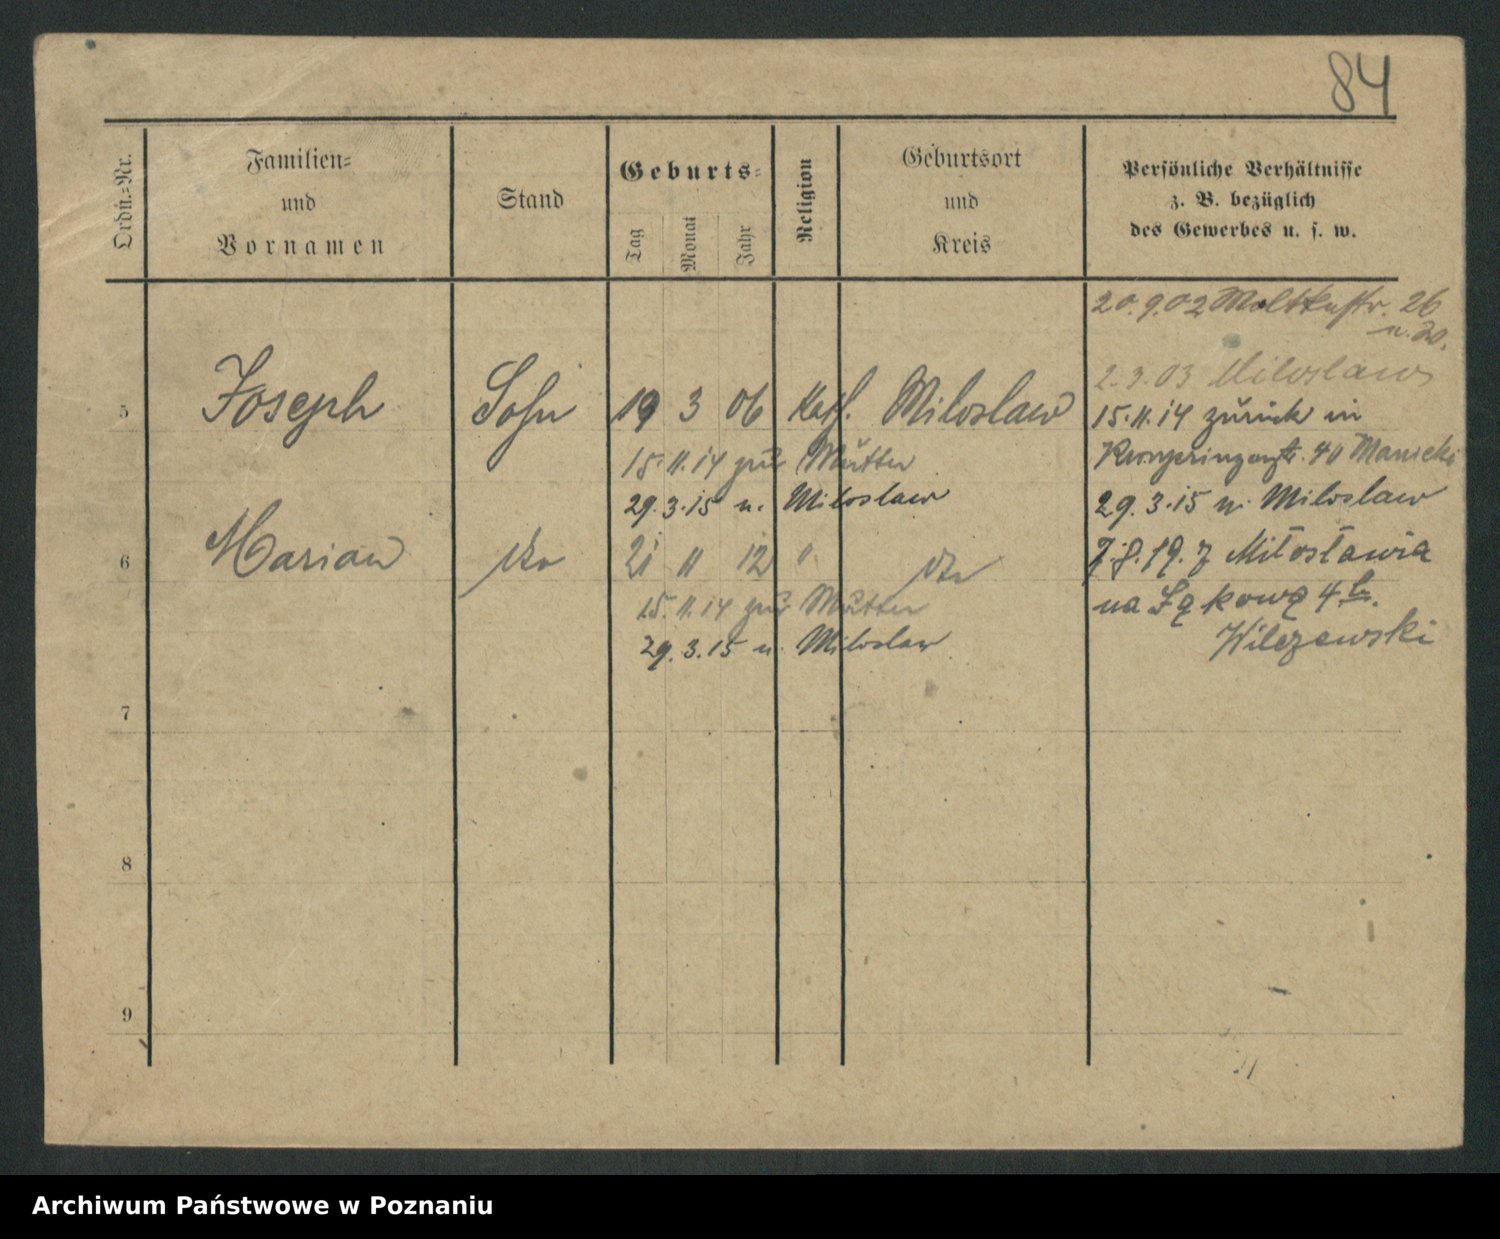 84
Ordn.-Nr.
Familien-
und
Vornamen
Stand
Geburts-
Tag
Monat
Jahr
Religion
Geburtsort
und
Kreis
Persönliche Verhältnisse
z. B. bezüglich
des Gewerbes u. s. w.
20.9.02 Moltkestr. 26
u. 30.
2.3.03 Miloslaw
5 Joseph Sohn 19 3 06 Kath. Miloslaw
15.11.14 zur Mutter
29.3.15 n. Miloslaw
15.11.14 zurück in
Kronprinzenstr. 40 Manicki
29.3.15 n. Miloslaw
6 Marian dto 21 11 12 " dto
15.11.14 zur Mutter
29.3.15 n. Miloslaw
7.8.19. z Miłosławia
na Łąkową 4
Wilczewski
7
8
9
Archiwum Państwowe w Poznaniu